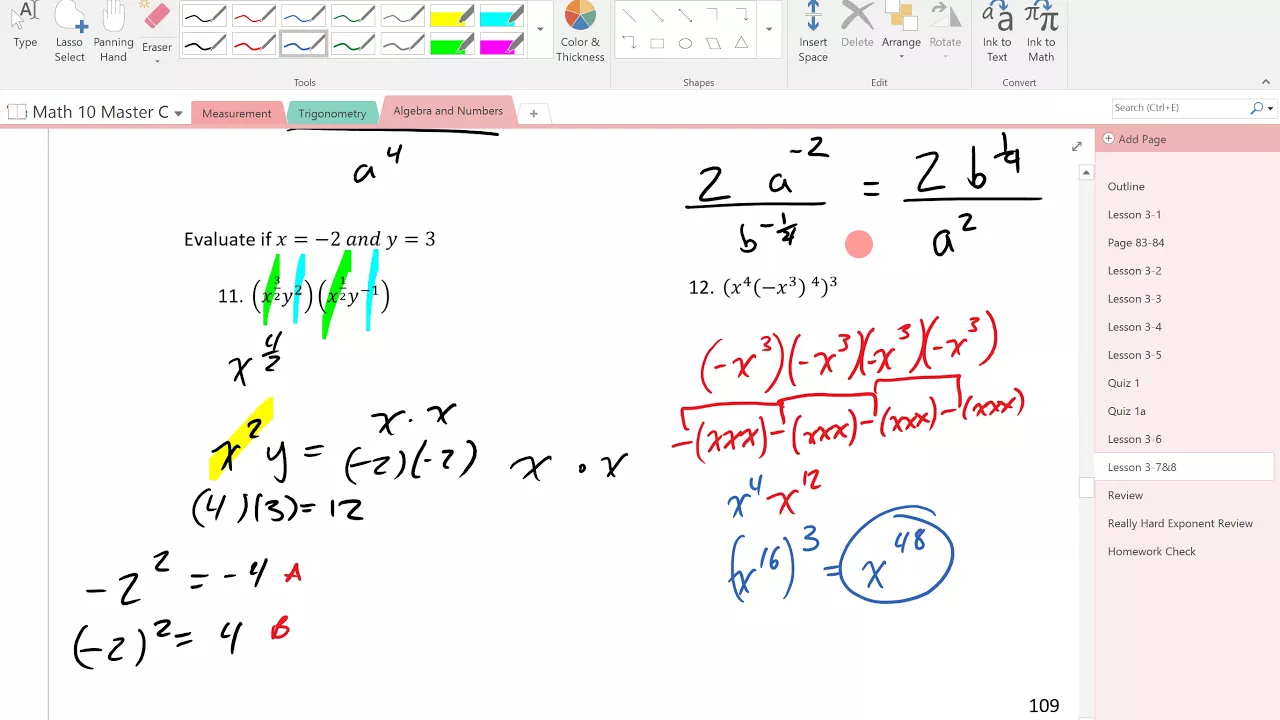 Type
Lasso Select
Panning Hand
Eraser
Color & Thickness
Insert Space
Delete
Arrange
Rotate
Ink to Text
Ink to Math
Tools
Shapes
Edit
Convert
Math 10 Master C
Measurement
Trigonometry
Algebra and Numbers
Search (Ctrl+E)
Add Page
Outline
Lesson 3-1
Page 83-84
Lesson 3-2
Lesson 3-3
Lesson 3-4
Lesson 3-5
Quiz 1
Quiz 1a
Lesson 3-6
Lesson 3-7&8
Review
Really Hard Exponent Review
Homework Check
a^4
Evaluate if x = −2 and y = 3
11. (x^(3/2)y^2)(x^(1/2)y^−1)
x^(4/2)
x · x
x^2 y = (-2)(-2) x · x
(4)(3) = 12
-2^2 = -4 A
(-2)^2 = 4 B
2 a^-2 / b^-1/4 = 2 b^1/4 / a^2
12. (x^4(−x^3)^4)^3
(-x^3)(-x^3)(-x^3)(-x^3)
-(xxx)-(xxx)-(xxx)-(xxx)
x^4 x^12
(x^16)^3 = x^48
109